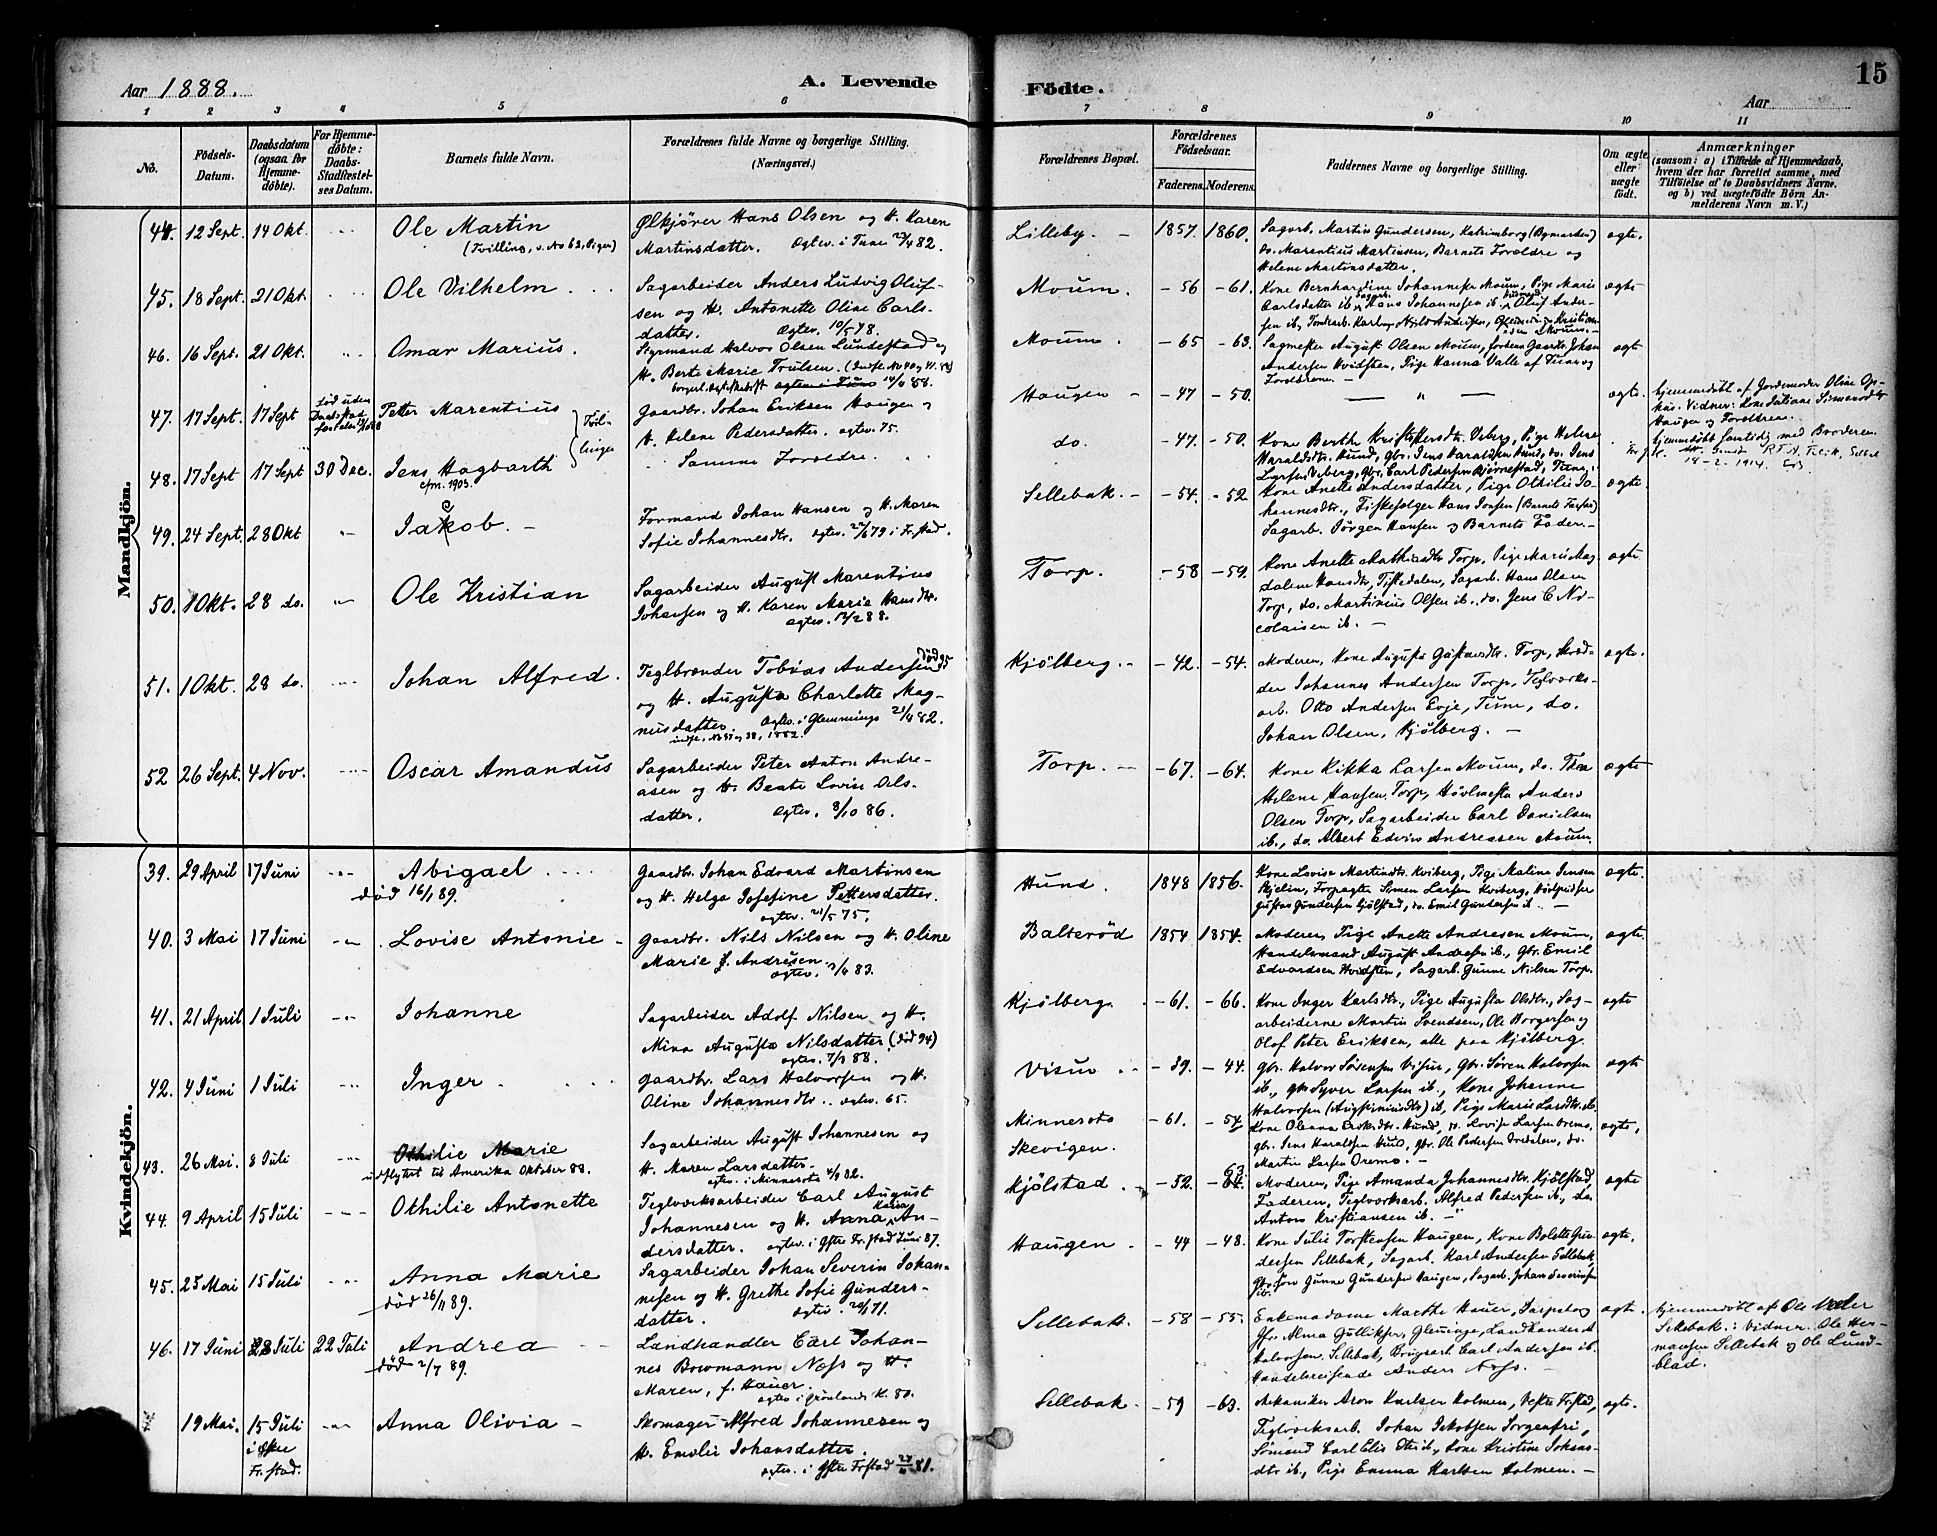 Aar 1888.
A. Levende
Födte.
15
Aar
1 2 3 4 5 6 7 8 9 10 11
No.
Födsels-Datum.
Daabsdatum (ogsaa for Hjemme-döbte).
For Hjemme-döbte: Daabs-Stadfæstel-ses Datum.
Barnets fulde Navn.
Forældrenes fulde Navne og borgerlige Stilling. (Næringsvei.)
Forældrenes Bopæl.
Forældrenes Födselsaar.
Faderens. Moderens.
Faddernes Navne og borgerlige Stilling.
Om ægte eller uægte födt.
Anmærkninger
(saasom: a) i Tilfælde af Hjemmedaab,
hvem der har forrettet samme, med
Tilföielse af to Daabsvidners Navne,
og b) ved uægtefödte Börn An-
melderens Navn m. V.)
Mandkjön.
44. 12 Sept. 14 Okt. Ole Martin
(Tvilling, v. No 62, Piger)
Ølkjører Hans Olsen og H. Karen
Martinsdatter. Ægtev. i Tune 82.
Lilleby. 1857. 1860.
Sagarb. Martin Gundersen, Katrineborg (Bymarken)
do. Marentius Martinsen, Barnets Forældre og
Helene Martinsdatter.
ægte.
45. 18 Sept. 21 Okt. Ole Vilhelm
Sagarbeider Anders Ludvig Oluf-
sen og H. Antonette Oline Carls-
datter. Ægtev. 10/5 78.
Moum. -56 -61.
Kone Bernhardine Johannesen Moum, Pige Marie
Carlsdatter ib., Hans Johannesen ib., Oluf Ander-
sen ib.
ægte
46. 16 Sept. 21 Okt. Omar Marius.
Styrmand Halvor Olsen Lundestad og
H. Berte Marie Trulsen.
Moum. -65 -63.
Sagmester August Olsen Moum, Johan
Andersen Hvidsten, Pige Hanna Valle af Tune og
Forældrene.
ægte
47. 17 Sept. 17 Sept død uden Daabs stad-
Petter Marentius
Gaardbr. Johan Eriksen Haugen og
H. Helene Pedersdatter. ægtev. 75.
Haugen -47 -50.
ægte.
hjemmedøbt af Jordemoder Oline Op-
hus. Vidner: Kone Juliane Simensdtr
Haugen og Forældren.
Tvil-
linger
48. 17 Sept 17 Sept 30 Dec. Jens Hagbarth
cfm. 1903.
Samme Forældre.
do. -47. -50.
Kone Berthe Kristoffersdtr. Veberg, Pige Helene
Haraldsdtr. Hund, gbr. Jens Haraldsen Hund, do. Jens
Larsen Veberg, gbr. Carl Pedersen Bjørnestad, Tune.
hjemmedøbt samtidig med Broderen.
14-2-1914.
49. 24 Sept. 28 Okt Jakob.
Formand Johan Hansen og H. Maren
Sofie Johannesdtr. ægtev. 79 i Fr.stad.
Sellebak. -54. -52
Kone Anette Andersdatter, Pige Othilie Jo-
hannesdtr., Fiskefølger Hans Jonsen (Barnets Farfar)
Sagarb. Jørgen Hansen og Barnets Fader.
ægte.
50. 1 Okt. 28 do. Ole Kristian
Sagarbeider August Marentius
Johansen og H. Karen Marie Hansdtr.
ægtev. 88.
Torp. -58 -59.
Kone Anette Mathiasdtr Torp, Pige Marie Mag-
dalene Hansdtr, Tistedalen, Sagarb. Hans Olsen
Torp, do. Martinius Olsen ib., do. Jens C. Ni-
colaisen ib.
ægte
51. 1 Okt. 28 do. Johan Alfred.
Teglbrænder Tobias Andersen død 95
og H. Augusta Charlotte Mag-
nusdatter. Ægtev. i Glemminge 21/4 82.
Kjølberg. -42. -54.
Moderen, Kone Augusta Gustavsdtr. Torp, Skræd-
der Johannes Andersen Torp, Teglværks-
arb. Otto Andersen Evje, Tune, do.
Johan Olsen, Kjølberg.
ægte.
52 26 Sept. 4 Nov. Oscar Amandus
Sagarbeider Peter Anton Andre-
asen og H. Beate Lovise Ols-
datter. Ægtev. 3/10 86.
Torp. -67. -64.
Kone Kikka Larsen Moum, do. Thea
Helene Hansen Torp, Høvlmester Anders
Olsen Torp, Sagarbeider Carl Danielsen
ib., do. Albert Edvin Andreasen Moum.
ægte
Kvindekjön.
39. 29 April 17 Juni Abigael
død 16/1 89.
Gaardbr. Johan Edvard Martinsen
og H. Helga Josefine Pettersdatter.
ægtev. 21/5 75.
Hund. 1848 1856.
Kone Lovise Martinsdtr. Kviberg, Pige Maline Jensen
Kjelin, Forpagter Simen Larsen Kviberg,
Gustav Gundersen Kjølstad, do. Emil Gundersen ib.
ægte.
40. 3 Mai 17 Juni Lovise Antonie
Gaardbr. Nils Nilsen og H. Oline
Marie f. Andresen.
ægtev. 83.
Balterød 1854 1854.
Moderen, Pige Anette Andresen Moum,
Handelsmand August Andresen ib., Gbr. Emil
Edvardsen Hvidsten, Sagarb. Gunne Nilsen Torp.
ægte.
41. 21 April 1 Juli Johanne
Sagarbeider Adolf Nilsen og H.
Mina Augusta Nilsdatter (død 94)
ægtev. 88.
Kjølberg. -61. -66.
Kone Inger Karlsdtr., Pige Augusta Olsdtr., Sag-
arbeiderne Martin Svendsen, Ole Borgersen og
Olof Peter Eriksen, alle paa Kjølberg.
ægte
42. 4 Juni 1 Juli Inger
Gaardbr. Lars Halvorsen og H.
Oline Johannesdtr. ægtev. 65.
Visur -39. -44.
Gbr. Halvor Sørensen Visur, Gbr. Søren Halvorsen
ib., gbr Syver Larsen ib., Kone Johanne
Halvorsen ib, Pige Marie Larsdtr. ib.
ægte
43. 26 Mai. 8 Juli Othilie Marie
udflyttet til Amerika Oktober 88.
Sagarbeider August Johannesen og
H. Maren Larsdatter.
ægtev. i Minnesota 4/3 82.
Minnesota
Skevigen. -61. -57
Kone Oleana Eriksdtr. Hund, do. Lovise Larsen Oremo,
gbr. Jens Haraldsen Hund, gbr. Ole Pedersen Dredalen, do.
Martin Larsen Oremo.
ægte.
44. 9 April 15 Juli Othilie Antonette
Teglværksarbeider Carl August
Johannesen og H. Anna Karin An-
dersdatter. ægtev. i Østre Fr.stad Juni 87.
Kjølstad -52. -64. 63
Moderen, Pige Amanda Johannesdtr. Kjølstad,
Faderen, Teglværksarb. Alfred Pedersen ib., do.
Anton Kristiansen ib.
ægte
45. 23 Mai 15 Juli Anna Marie
død 26/11 89.
Sagarbeider Johan Severin Johan-
nesen og H. Grethe Sofie Gunders-
datter. ægtev. 71.
Haugen -44 -48.
Kone Julie Torstensen Haugen, Kone Bolette Gun-
dersen Sellebak, Sagarb. Karl Andersen Sellebak,
Gbr. Gunne Gundersen Haugen, Sagarb. Johan Severinsen
ib.
ægte.
46. 17 Juni 23 Juli 22 Juli Andrea
død 2/7 89.
Landhandler Carl Johan-
nes Bowmann Næss og H.
Maren, f. Hauer.
ægtev. i Grønlands K. 80.
Sellebak. -58 -55.
Enkemadame Marthe Hauer, Sarpsborg
Frk. Alma Gulliksen, Glemminge, Landhandler A
Halvorsen, Sellebak, Brugsarb. Carl Andersen ib.
Handelsreisende Anders Næss.
ægte.
hjemmedøbt af Ole Wæler
Sellebak: Vidner: Ole Her-
mansen Sellebak og Ole Lund-
blad.
19 Mai. 15 Juli
i Østre
Fr.stad.
Anna Olivia
Skomager Alfred Johannesen og
H. Emilie Johansdatter.
ægtev. i Østre Fr.stad 81.
Sellebak. -59 -63.
Mekaniker Aron Karlsen Holmen, Vestre Fr.stad,
Teglværksarb. Johan Jakobsen Sorgenfri,
Sømand Carl Elis ib, Kone Kristine Johans-
dtr ib., Pige Emma Karlsen Holmen.
ægte.